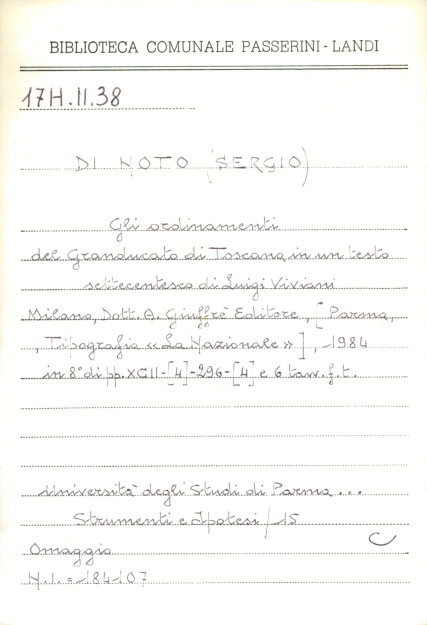 BIBLIOTECA COMUNALE PASSERINI-LANDI
17H.II.38
DI NOTO (SERGIO)
Gli ordinamenti
del Granducato di Toscana in un testo
settecentesco di Luigi Viviani
Milano, Dott. A. Giuffrè Editore, [Parma,
, Tipografia «La Nazionale»], 1984
in 8° di pp. XCII-[4]-296-[4] e 6 tavv. f.t.
Università degli Studi di Parma...
Strumenti e Ipotesi / 15
C
Omaggio
N.I. = 184107